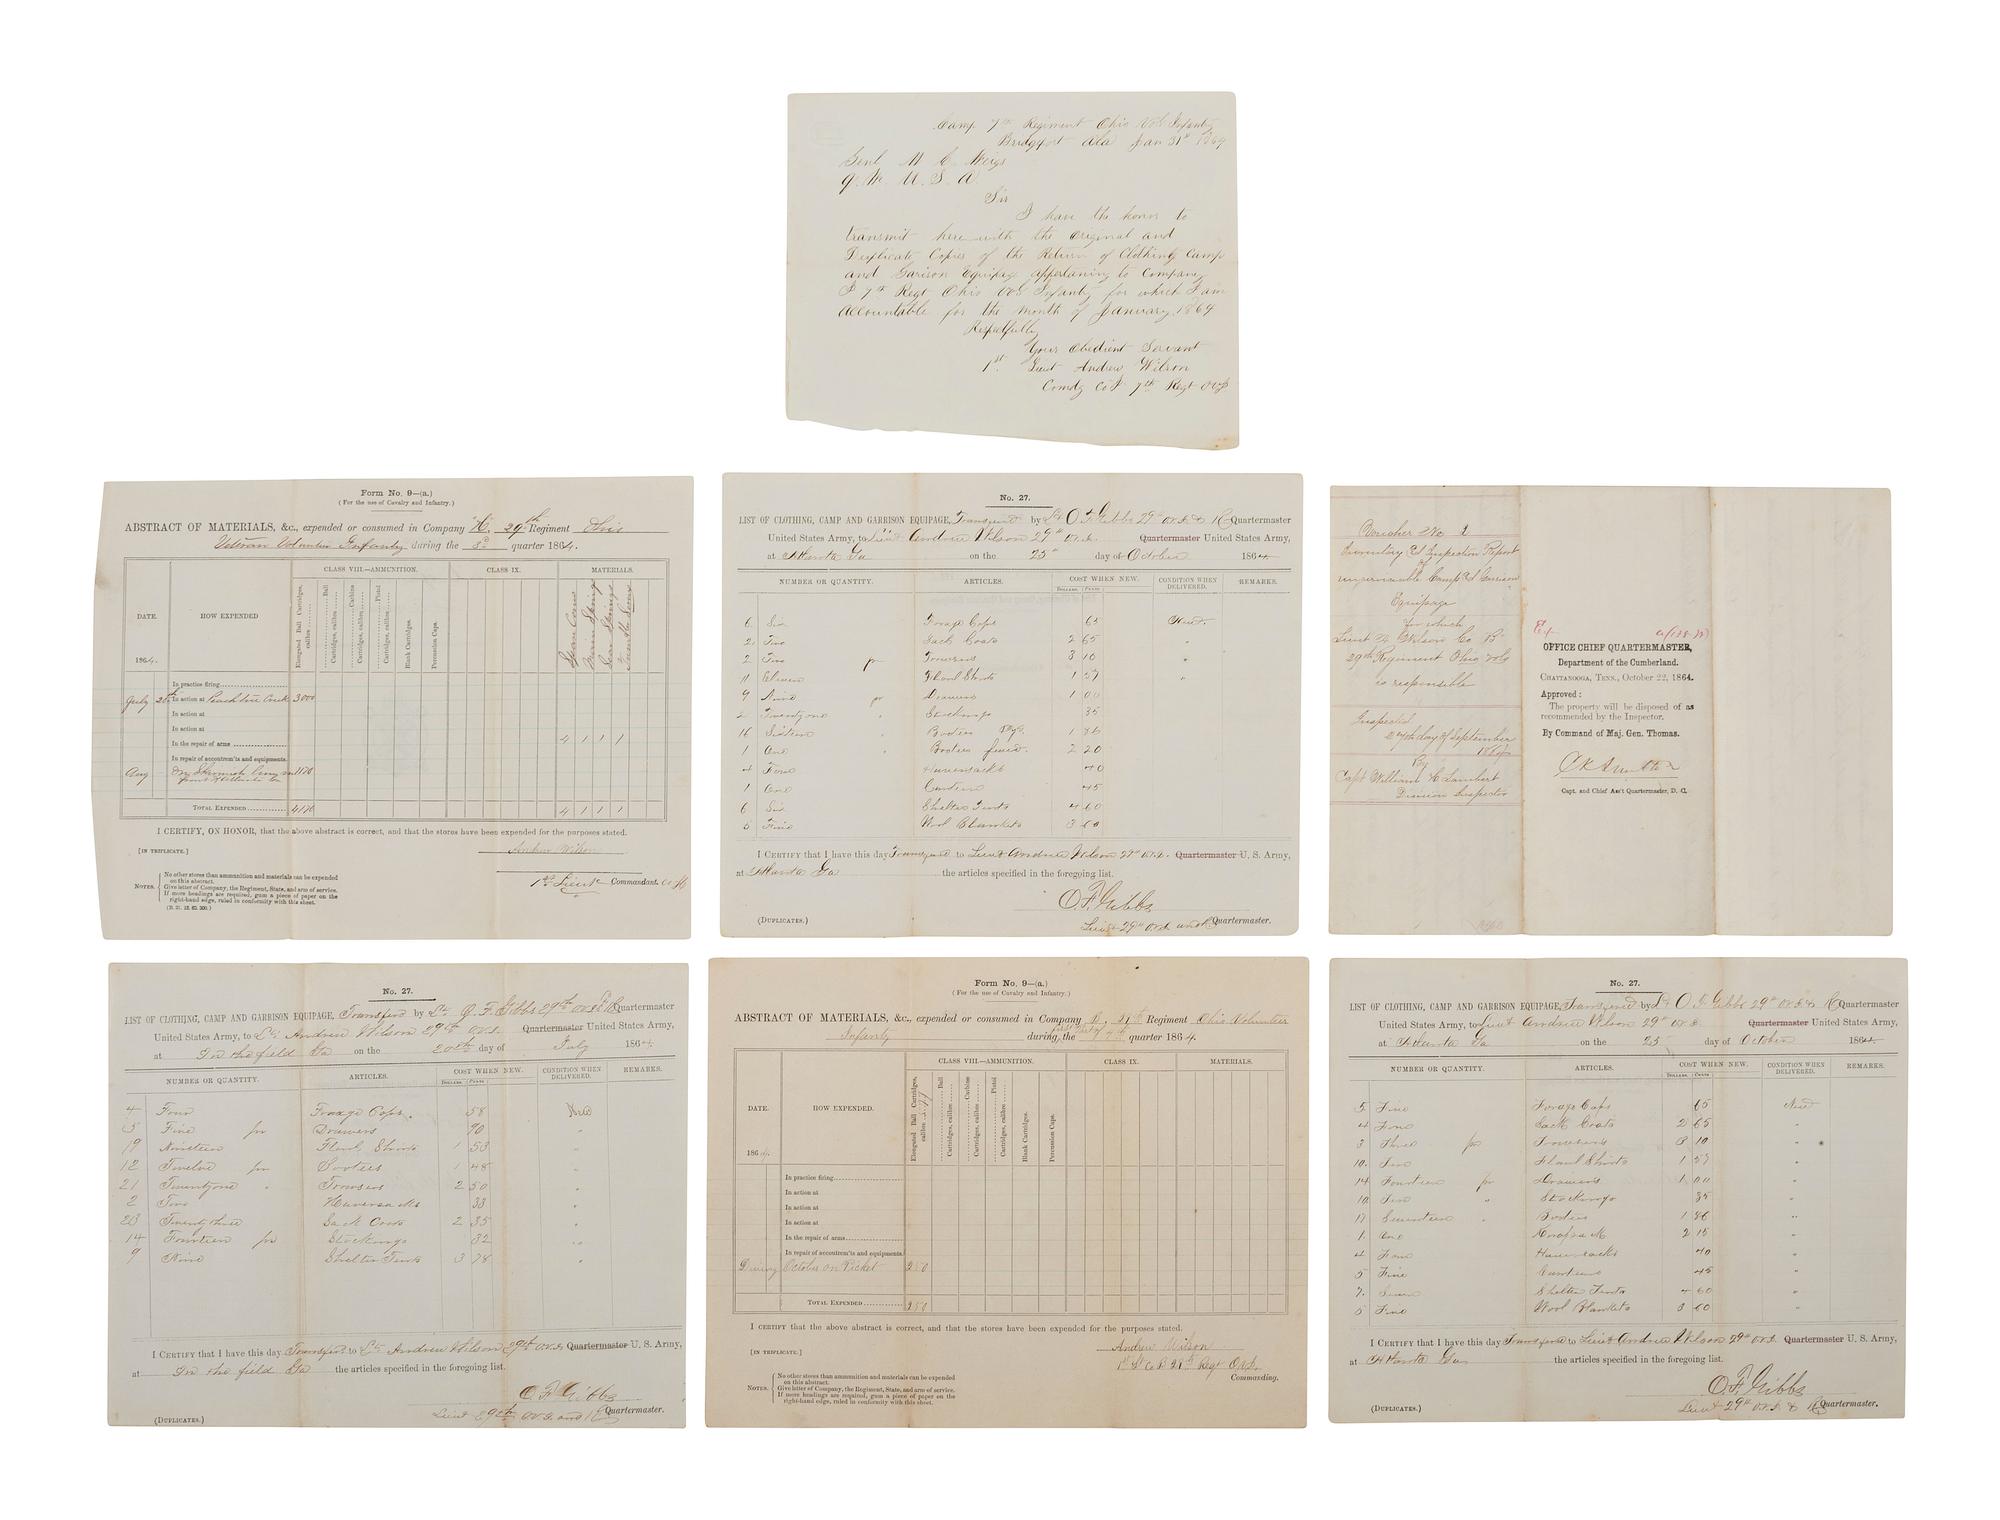 Camp 7th Regiment Ohio Vol Infantry
Bridgport Ala Jan 31st 1864
Genl M C Meigs
Q. M. U. S. A
Sir
I have the honor to
transmit here with the Original and
Duplicate Copies of the Return of Clothing Camp
and Garison Equipage appertaning to Company
7th Regt Ohio Vol Infantry for which I am
Accountable for the Month of January 1864
Respectfully
Your Obedient Servant
1st Lieut Andrew Wilson
Comdg Co 7th Regt
Form No. 9—(a.)
(For the use of Cavalry and Infantry.)
ABSTRACT OF MATERIALS, &c., expended or consumed in Company H. 29th Regiment Ohio
Veteran Volunteer Infantry during the 3d quarter 1864.
CLASS VIII.—AMMUNITION. CLASS IX. MATERIALS.
DATE. HOW EXPENDED
Elongated Ball Cartridges, calibre
Cartridges, calibre Ball
Cartridges, calibre Carbine
Cartridges, calibre Pistol
Blank Cartridges.
Percussion Caps.
1864.
In practice firing
July 20th In action at Peach tree Creek 3000
In action at
In action at
In the repair of arms 4 1 1 1
In repair of accoutrem'ts and equipments.
Aug 1170
TOTAL EXPENDED 4170 4 1 1 1
I CERTIFY, ON HONOR, that the above abstract is correct, and that the stores have been expended for the purposes stated.
[IN TRIPLICATE.] Andrew Wilson
1st Lieut Commandant. Co H
NOTES. No other stores than ammunition and materials can be expended
on this abstract.
Give letter of Company, the Regiment, State, and arm of service.
If more headings are required, gum a piece of paper on the
right-hand edge, ruled in conformity with this sheet.
No. 27.
LIST OF CLOTHING, CAMP AND GARRISON EQUIPAGE, Transferred by Lt O F Gibbs 29th O.V.I. & R Quartermaster
United States Army, to Lieut Andrew Wilson 29th O.V.I. Quartermaster United States Army,
at Atlanta Ga on the 25th day of October 1864
NUMBER OR QUANTITY. ARTICLES. COST WHEN NEW. CONDITION WHEN DELIVERED. REMARKS.
DOLLARS. CENTS.
6 Six Forage Caps 65 New
Sack Coats 2 65 "
2 Two pr Trowsers 3 10 "
11 Eleven Flanl Shirts 1 57 "
9 Nine pr Drawers 1 00
Twentyone " Stockings 35
16 Sixteen " Bootees 1 86
1 One " Bootees 2 20
4 Four Haversacks 40
1 One Canteen 45
6 Six Shelter Tents 4 60
5 Five Wool Blankets 3 60
I CERTIFY that I have this day Transferred to Lieut Andrew Wilson 29th O.V.I. Quartermaster U. S. Army,
at Atlanta Ga the articles specified in the foregoing list.
O. F. Gibbs
(DUPLICATES.) Lieut 29th O.V.I. and R Quartermaster.
Voucher No 2
Inventory & Inspection Report
of
unserviceable Camp & Garrison
Equipage
for which
Lieut A Wilson Co B
29th Regiment Ohio Vols
is responsible
Inspected
27th day of September
1864
By
Capt William H Lambert
Division Inspector
OFFICE CHIEF QUARTERMASTER,
Department of the Cumberland.
CHATTANOOGA, TENN., October 22, 1864.
Approved:
The property will be disposed of as
recommended by the Inspector.
By Command of Maj. Gen. Thomas.
Capt. and Chief Ass't Quartermaster, D. C.
No. 27.
LIST OF CLOTHING, CAMP AND GARRISON EQUIPAGE, Transferred by Lt. O. F. Gibbs 29th O.V.I. & R Quartermaster
United States Army, to Lt. Andrew Wilson 29th O.V.I. Quartermaster United States Army,
at In the field Ga on the 20th day of July 1864.
NUMBER OR QUANTITY. ARTICLES. COST WHEN NEW. CONDITION WHEN DELIVERED. REMARKS.
DOLLARS. CENTS.
4 Four Forage Caps. 58 New
5 Five pr Drawers 90 "
19 Nineteen Flanl Shirts 1 53 "
12 Twelve pr Bootees 1 48 "
21 Twentyone " Trowsers 2 50 "
2 Two Haversacks 33 "
23 Twentythree Sack Coats 2 35 "
14 Fourteen pr Stockings 32 "
9 Nine Shelter Tents 3 78 "
I CERTIFY that I have this day Transferred to Lt. Andrew Wilson 29th O.V.I. Quartermaster U. S. Army,
at In the field Ga the articles specified in the foregoing list.
O F Gibbs
Lieut 29th O.V.I. and R Quartermaster.
(DUPLICATES.)
Form No. 9—(a.)
(For the use of Cavalry and Infantry.)
ABSTRACT OF MATERIALS, &c., expended or consumed in Company B. 29th Regiment Ohio Volunteer
Infantry during the quarter 1864.
CLASS VIII.—AMMUNITION. CLASS IX. MATERIALS.
DATE. HOW EXPENDED.
Elongated Ball Cartridges, calibre
Cartridges, calibre Ball
Cartridges, calibre Carbine
Cartridges, calibre Pistol
Blank Cartridges.
Percussion Caps.
186
In practice firing
In action at
In action at
In action at
In the repair of arms
In repair of accoutrem'ts and equipments.
During October on Picket 250
TOTAL EXPENDED 250
I CERTIFY that the above abstract is correct, and that the stores have been expended for the purposes stated.
[IN TRIPLICATE.] Andrew Wilson
1st Lt Co B 29th Regt O.V.I.
Commanding.
NOTES. No other stores than ammunition and materials can be expended
on this abstract.
Give letter of Company, the Regiment, State, and arm of service.
If more headings are required, gum a piece of paper on the
right-hand edge, ruled in conformity with this sheet.
No. 27.
LIST OF CLOTHING, CAMP AND GARRISON EQUIPAGE, Transferred by Lt O F Gibbs 29th O.V.I. & R Quartermaster
United States Army, to Lieut Andrew Wilson 29th O.V.I. Quartermaster United States Army,
at Atlanta Ga on the 25 day of October 1864
NUMBER OR QUANTITY. ARTICLES. COST WHEN NEW. CONDITION WHEN DELIVERED. REMARKS.
DOLLARS. CENTS.
5 Five Forage Caps 65 New
4 Four Sack Coats 2 65 "
3 Three pr Trowsers 3 10 "
10 Ten Flanl Shirts 1 57 "
14 Fourteen pr Drawers 1 00 "
10 Ten " Stockings 35 "
17 Seventeen " Bootees 1 86 "
1 One Knapsack 2 15 "
4 Four Haversacks 40 "
5 Five Canteens 45 "
7 Seven Shelter Tents 4 60 "
5 Five Wool Blankets 3 60 "
I CERTIFY that I have this day Transferred to Lieut Andrew Wilson 29th O.V.I. Quartermaster U. S. Army,
at Atlanta Ga the articles specified in the foregoing list.
O. F. Gibbs
(DUPLICATES.) Lieut 29th O.V.I. & R Quartermaster.